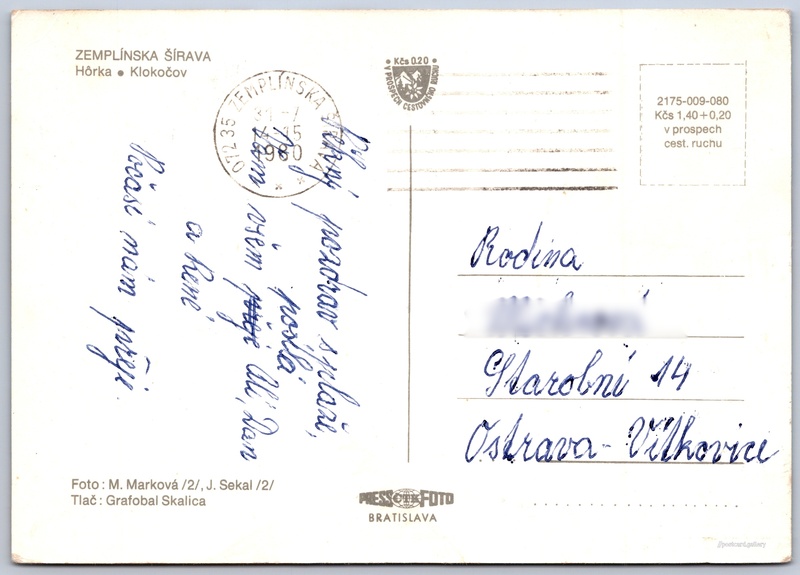 ZEMPLÍNSKA ŠÍRAVA
Hôrka • Klokočov
072 35 ZEMPLÍNSKA ŠÍRAVA
1980
Kčs 0.20
V PROSPECH CESTOVNÉHO RUCHU
2175-009-080
Kčs 1,40+0,20
v prospech
cest. ruchu
pozdrav s pláže,
posílá
Vám všem Uli, Dan
a René
Počasí mám přeji.
Rodina
Starobní 14
Ostrava-Vítkovice
Foto: M. Marková /2/, J. Sekal /2/
Tlač: Grafobal Skalica
PRESSČTKFOTO
BRATISLAVA
//postcard.gallery